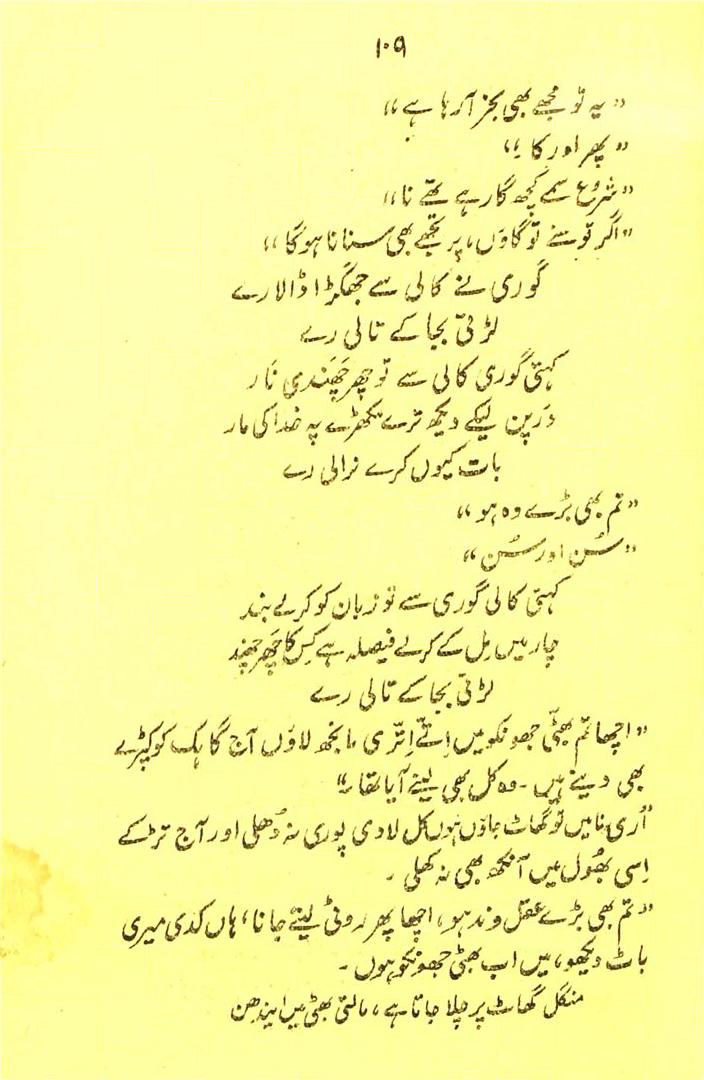 ۱۰۹
"یہ تو مجھے بھی نجز آ رہا ہے"
"پھر اور کا ؟"
"شروع سمے کچھ گا رہے تھے نا"
"اگر تو سنے تو گاؤں، پر تجھے بھی سنانا ہوگا"
گوری نے کالی سے جھگڑا ڈالا رے
لڑتی بجا کے تالی رے
کہتی گوری کالی سے تو چھر چھندی نار
درپن لیکے دیکھ ترے مکھڑے پہ خدا کی مار
بات کیوں کرے نرالی رے
"تم بھی بڑے وہ ہو"
"سُن اور سُن"
کہتی کالی گوری سے تو زبان کو کر لے بند
چار میں مِل کے کر لے فیصلہ ہے کِس کا چَھر چھند
لڑتی بجا کے تالی رے
"اچھا تم بھٹی جھونکو میں اِتّے اِتّری مانجھ لاؤں آج گاہک کو کپڑے
بھی دینے ہیں۔ وہ کل بھی لینے آیا تھا۔"
"اُری نا میں تو گھاٹ جاؤں ہوں کل لادی پوری نہ دُھلی اور آج تڑکے
اِسی بھُول میں آنکھ بھی نہ کھلی۔
"تم بھی بڑے عقل وند ہو، اچھا پھر روٹی لیتے جانا، ہاں کدی میری
باٹ دیکھو، میں اب بھٹی جھونکو ہوں۔
منگل گھاٹ پر چلا جاتا ہے، مالتی بھٹی میں ایندھن